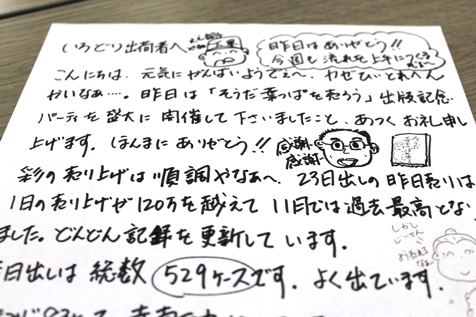 いろどり出荷者へ
昨日はありがとう!!
今週も流れを上手に
こんにちは、元気にがんばいようでぇへ、かぜひいとれへん
かいなぁ…。昨日は「そうだ葉っぱを売ろう」出版記念
パーティを盛大に開催して下さいましたこと、あつくお礼申し
上げます。ほんまにありがとう!!
感謝
感謝
彩の売り上げは順調やなぁへ、23日出しの昨日売りは
1日の売り上げが120万を越えて11月では過去最高とな
ました。どんどん記録を更新しています。
日出しは総数 529ケースです。よく出ています。